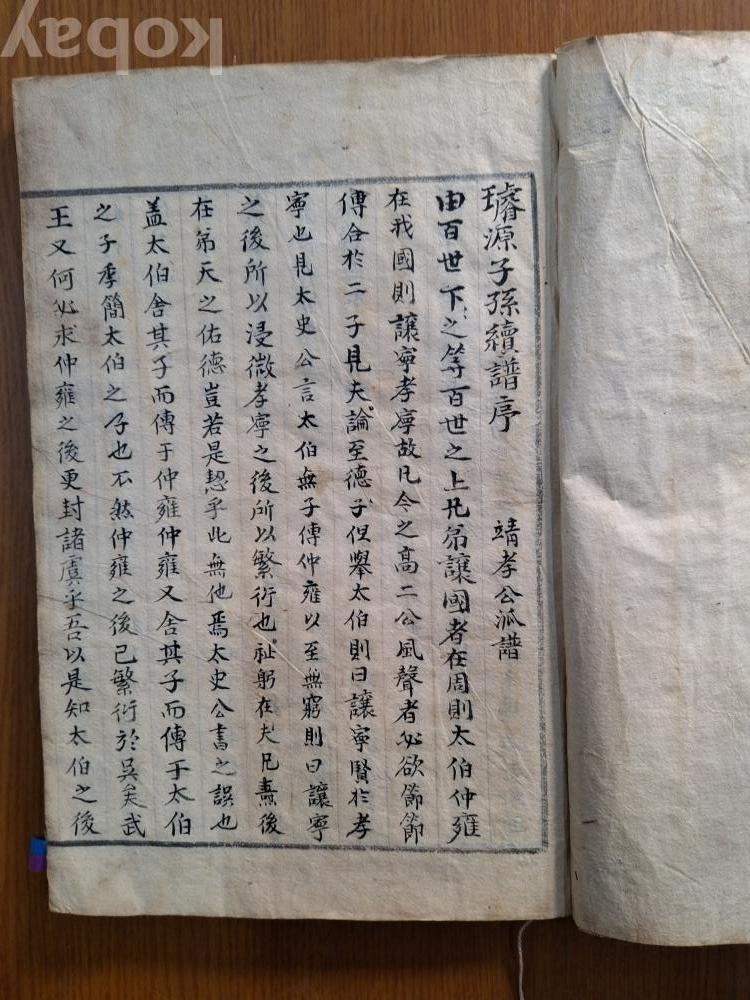 kobay
璿源子孫續譜序 靖孝公派譜
由百世下之等百世之上凡弟讓國者在周則太伯仲雍
在我國則讓寧孝寧故凡今之高二公風聲者必欲節節
傅合於二子見夫論至德子但擧太伯則曰讓寧賢於孝
寧也見太史公言太伯無子傳仲雍以至無窮則曰讓寧
之後所以浸微孝寧之後所以繁衍也祉躬在夫兄燾後
在弟天之佑德豈若是恝乎此無他焉太史公書之誤也
盖太伯舍其子而傳于仲雍仲雍又舍其子而傳于太伯
之子季簡太伯之子也不然仲雍之後已繁衍於吳矣武
王又何必求仲雍之後更封諸虞乎吾以是知太伯之後